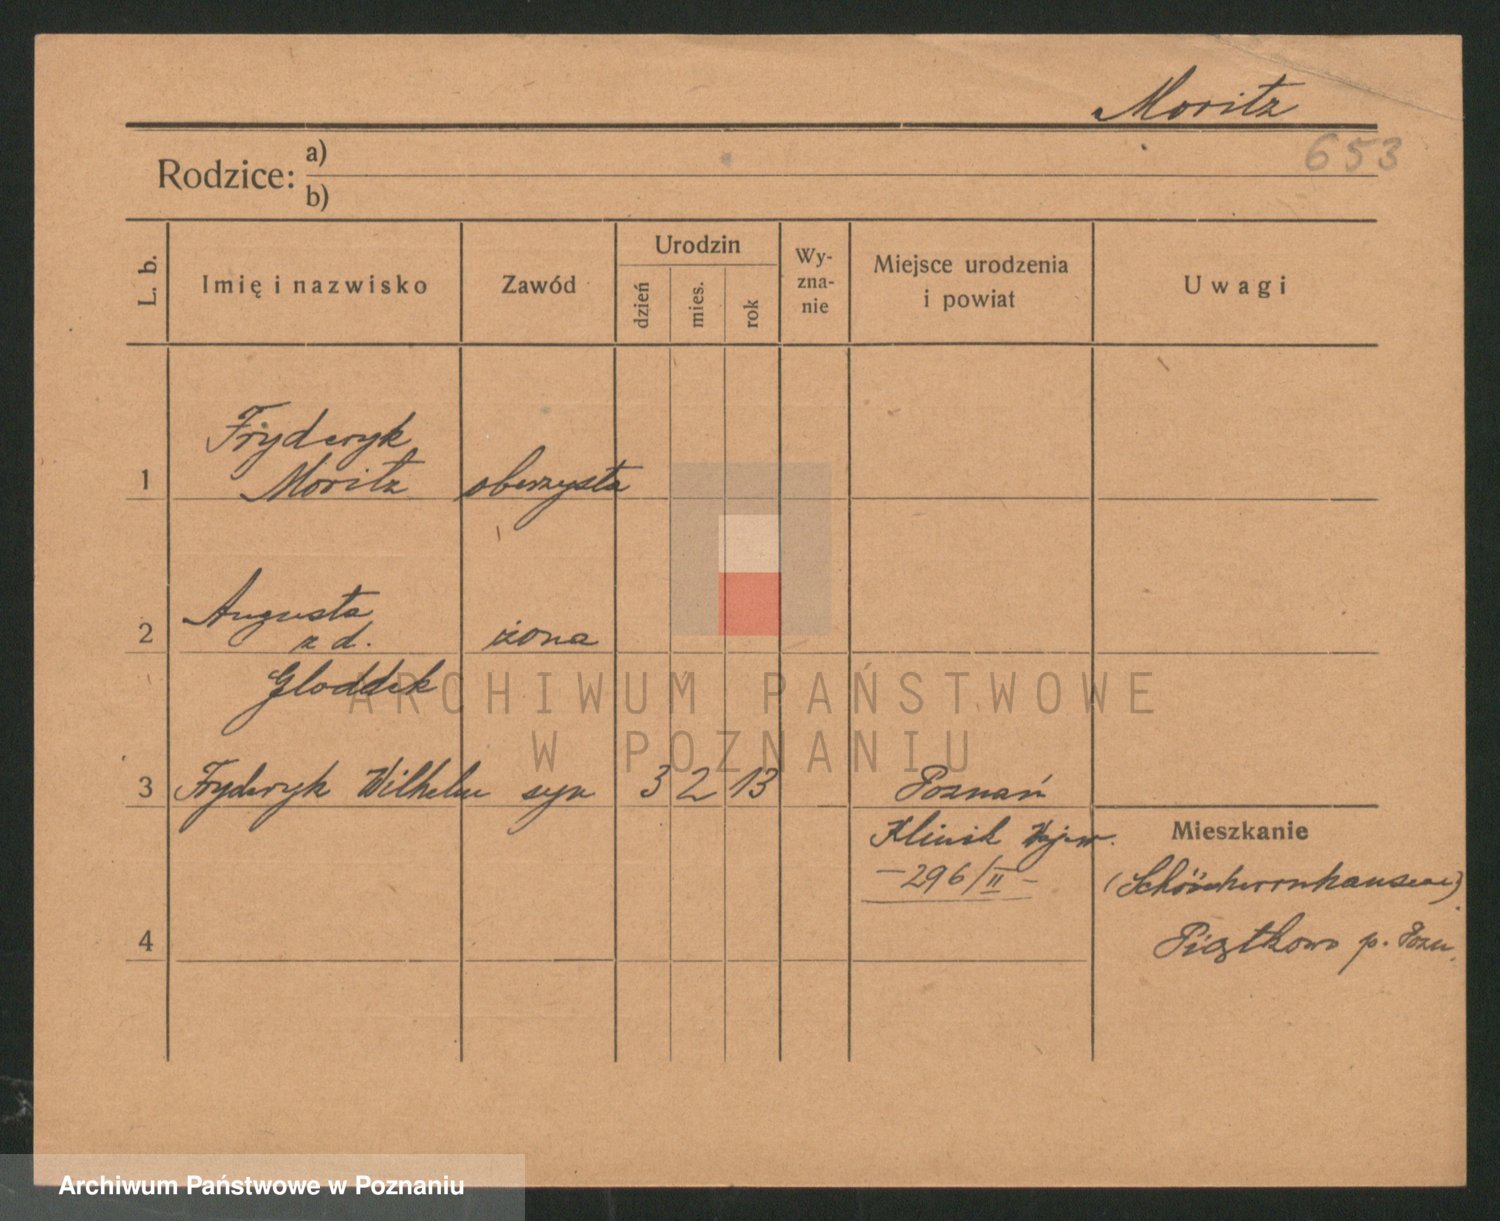 Moritz
653
Rodzice: a)
b)
L. b.
Imię i nazwisko
Zawód
Urodzin
dzień
mies.
rok
Wy-
zna-
nie
Miejsce urodzenia
i powiat
Uwagi
Fryderyk
1 Moritz oberzysta
Augusta
2 z d. żona
Gloddek
3 Fryderyk Wilhelm syn 3 2 13 Poznań
Klinik
- 296/II -
Mieszkanie
(Schönherrnhausen)
4
Piątkowo p. Pozn.
ARCHIWUM PAŃSTWOWE
W POZNANIU
Archiwum Państwowe w Poznaniu